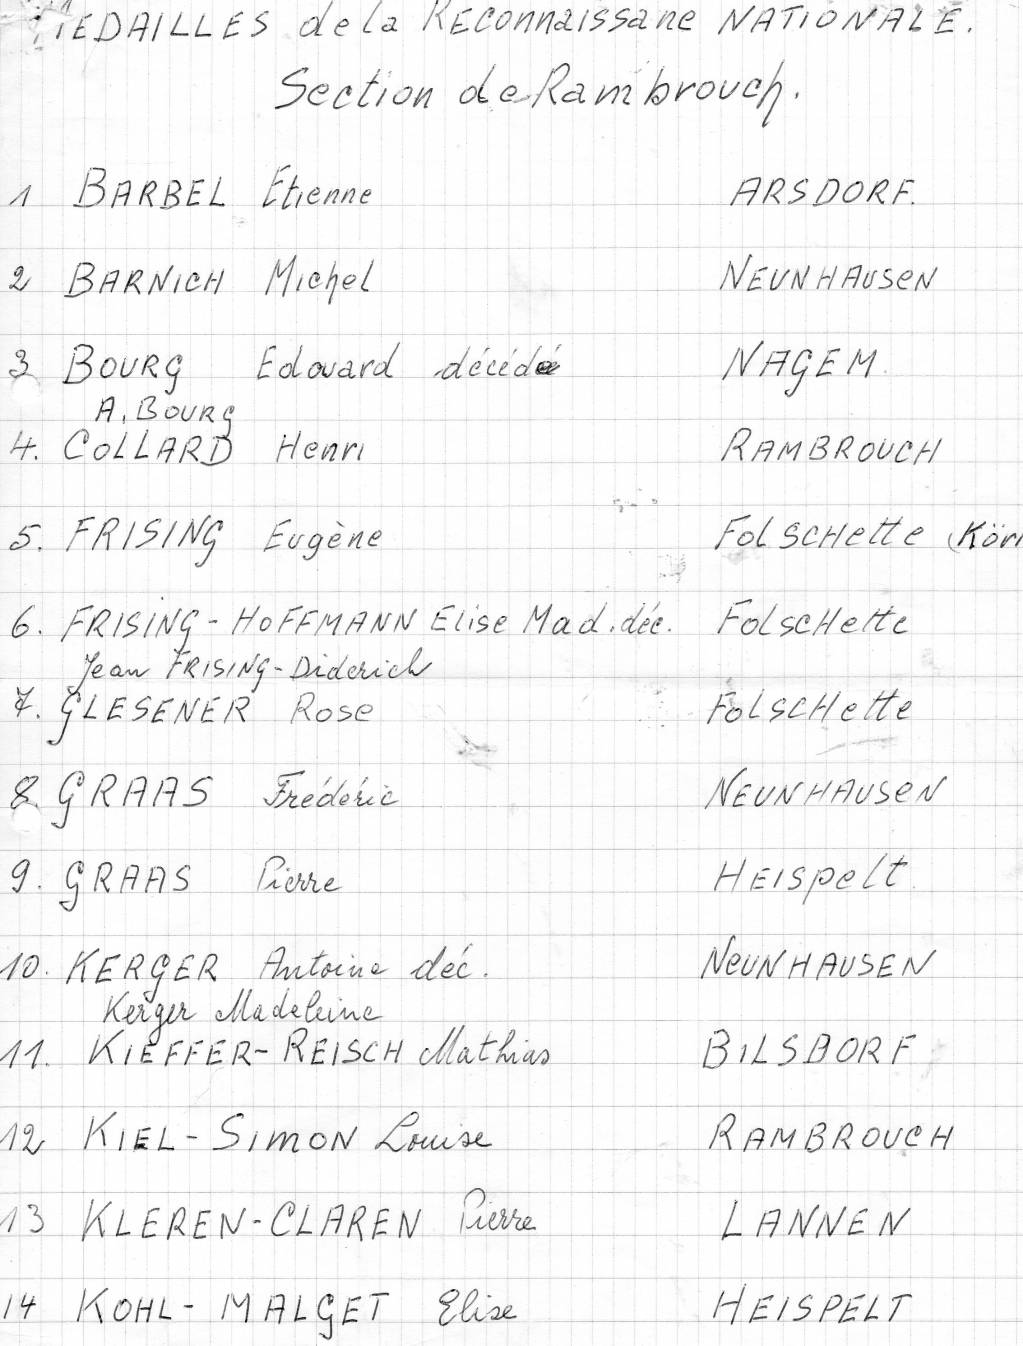 MEDAILLES de la RECONNAISSANCE NATIONALE.
Section de Rambrouch.
1 BARBEL Etienne ARSDORF.
2 BARNICH Michel NEUNHAUSEN
3 BOURG Edouard décédé NAGEM.
A. BOURG
4. COLLARD Henri RAMBROUCH
5. FRISING Eugène FOLSCHette (Köri
6. FRISING-HOFFMANN Elise Mad. déc. FOLSCHette
Jean FRISING-Diderich
7. GLESENER Rose FOLSCHette
8. GRAAS Frédéric NEUNHAUSEN
9. GRAAS Pierre HEISPelt.
10. KERGER Antoine déc. NEUNHAUSEN
Kerger Madeleine
11. KIEFFER-REISCH Mathias BILSDORF
12 KIEL-SIMON Louise RAMBROUCH
13 KLEREN-CLAREN Pierre LANNEN
14 KOHL-MALGET Elise HEISPELT